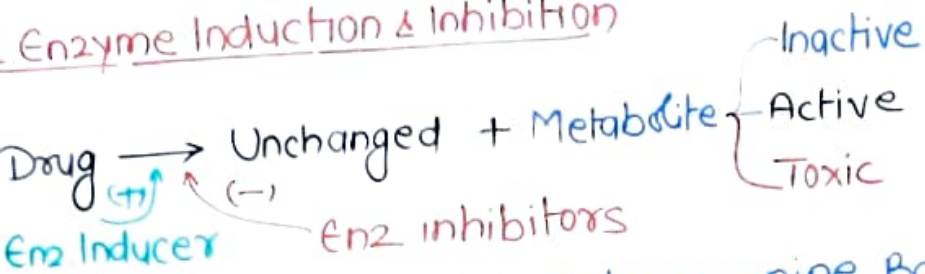 Enzyme Induction & Inhibition
Inactive
Drug → Unchanged + Metabolite
Active
Toxic
(+) (-)
Enz Inducer
Enz inhibitors